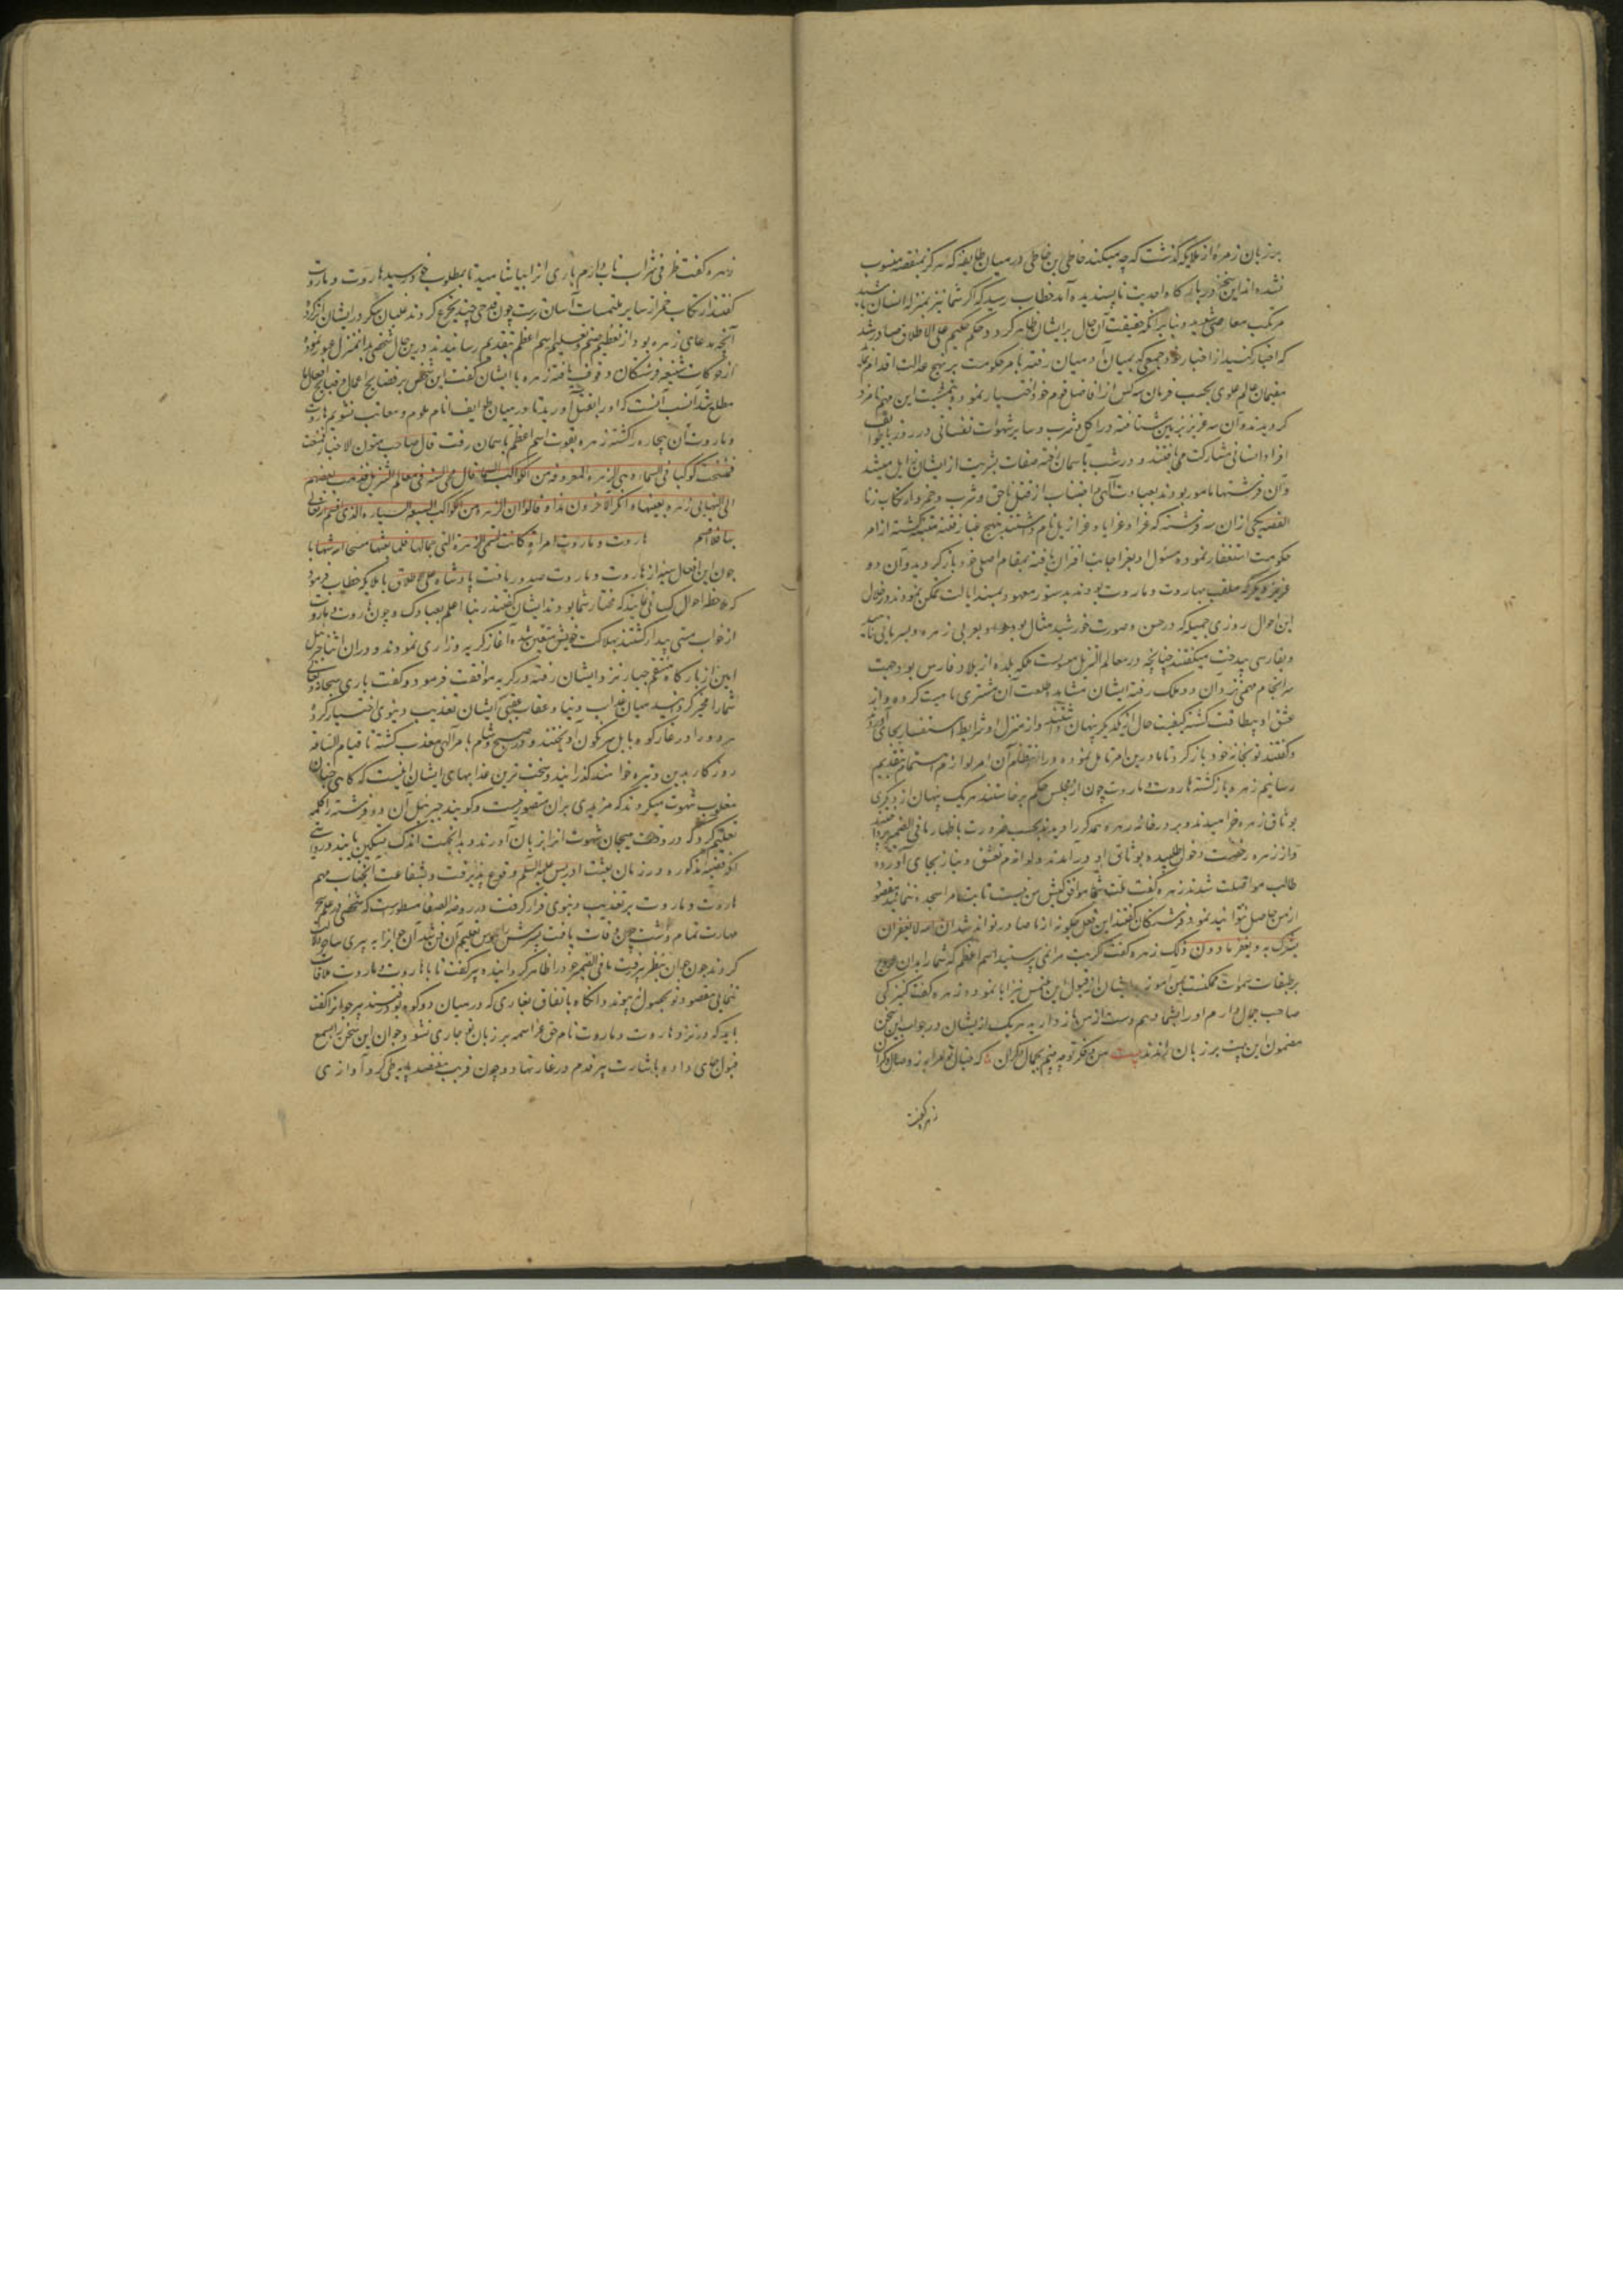 بر زبان زمره از ملایکه گذشت که چه میکنند خاطی بن خاطی در میان طایفه که هرگز بمنقصه منسوب
نشده اند این سخن در بارگاه احدیت ناپسندیده آمد خطاب رسید که اگر شما نیز بمنزله انسان باشید
مرتکب معاصی شوید و بنابر آنکه حقیقت آن حال بر ایشان ظاهر گردد حکم حکیم علی الاطلاق صادر شد
که اختیار کنید از اخیار خود جمعی که بمیان آدمیان رفته بامر حکومت بر نهج عدالت اقدام
مقیمان عالم علوی بحسب فرمان سه کس از افاضل قوم خود اختیار نمودند و بتمشیت این مهم نامزد
گردیدند و آن سه عزیز بزمین شتافته در اکل و شرب و سایر شهوات نفسانی در روز با طوایف
افراد انسانی مشارکت می یافتند و در شب بآسمان رفته صفات بشریت از ایشان زایل میشد
و آن فرشتها مامور بودند بعبادت الهی و اجتناب از قتل ناحق و شرب خمر و ارتکاب زنا
القصه یکی از آن سه فرشته که عزا و عزایا و عزازیل نام داشتند بنهج غبار فتنه متنبه گشته از امر
حکومت استعفا نموده مسئول او بعز اجابت اقتران یافته بمقام اصلی خود باز گردید و آن دو
عزیز دیگر که ملقب بهاروت و ماروت بودند بدستور معهود بمسند ایالت تمکن نمودند در خلال
این احوال روزی جمیله که در حسن و صورت خورشید مثال بود و بعربی زهره و بسریانی ناهید
و بفارسی بیدخت میگفتند چنانچه در معالم التنزیل مسطورست ملکه بلده از بلاد فارس بود جهت
سرانجام مهمی نزد آن دو ملک رفته ایشان مشاهده طلعت آن مشتری ماهیت کرده و از
عشق او بیطاقت گشته کیفیت حال از یکدیگر پنهان داشتند و از منزل او شرایط استفسار بجای آوردند
و گفتند تو بخانه خود باز گرد تا ما درین امر تامل نموده در انتظام آن امر لوازم اهتمام بتقدیم
رسانیم زهره باز گشته هاروت و ماروت چون از مجلس حکم برخاستند هر یک پنهان از دیگری
بوثاق زهره خرامیدند و بر در خانه زهره همدیگر را دیدند بحسب ضرورت باظهار ما فی الضمیر پرداختند
و از زهره رخصت دخول طلبیده بوثاق او در آمدند و لوازم تعشق و نیاز بجای آورده
طالب مواصلت شدند زهره گفت ملت شما موافق کیش من نیست تا بت مرا سجده ننمائید مقصود
از من حاصل نتوانید نمود فرشتگان گفتند این فعل چگونه از ما صادر تواند شد ان الله لا یغفر ان
یشرک به و یغفر ما دون ذلک زهره گفت اگر بت مرا نمی پرستید اسم اعظم که شما را بدان عروج
بر طبقات سموات ممکنست بمن آموزید ایشان از قبول این ملتمس نیز ابا نمودند زهره گفت کنیزکی
صاحب جمال دارم او را بشما دهم دست از من باز دارید هر یک از ایشان در جواب این سخن
مضمون این بیت بر زبان راندند بیت من و فکر تو چه بینم بجمال دگران که خیال تو مرا به ز وصال دگران
زهره گفت
زهره گفت ظرفی شراب ناب دارم باری از آن بیاشامید تا بمطلوب خود رسید هاروت و ماروت
گفتند ارتکاب خمر از سایر ملتمسات آسان ترست چون قدحی چند تجرع کردند غلبان سکر در ایشان اثر کرده
آنچه مدعای زهره بود از تعظیم صنم و تعلیم اسم اعظم بتقدیم رسانیدند درین حال شخصی بدان منزل عبور نموده
از حرکات شنیعه فرشتگان وقوف یافته زهره با ایشان گفت این شخص بر فضایح اعمال و قبایح افعال ما
مطلع شد انسب آنست که او را بقتل آورید تا در میان طوایف انام ملوم و معاتب نشویم هاروت
و ماروت آن بیچاره را کشته زهره بقوت اسم اعظم بآسمان رفت قال صاحب متون الاخبار فمسخت
فمسخت کوکبا فی السماء و هی الزهره المعروفه من الکواکب السیاره قال محی السنه فی معالم التنزیل فذهب بعضهم
الی انها هی زهره بعینها و انکر الآخرون هذا و قالوا ان الزهره من الکواکب السبعه السیاره الذی اقسم الله تعالی
بها فلا اقسم هاروت و ماروت امراة کانت تسمی الزهره التی بجمالها فلما بغتها مسخها الله شهابا
چون این افعال سیئه از هاروت و ماروت صدور یافت پادشاه علی الاطلاق با ملایکه خطاب فرمود
که ملاحظه احوال کسانی نمایند که مختار شما بودند ایشان گفتند ربنا اعلم بعبادک و چون هاروت و ماروت
از خواب مستی بیدار گشتند بهلاکت خویش متیقن شده آغاز گریه و زاری نمودند و در آن اثنا جبرئیل
امین از بارگاه منتقم جبار نزد ایشان رفته در گریه موافقت فرمود و گفت باری سبحانه و تعالی
شما را مخیر گردانید میان عذاب دنیا و عقاب عقبی ایشان تعذیب دنیوی اختیار کرده
هر دو را در غار کوه بابل سرنگون آویختند و در صبح و شام بامر الهی معذب گشته تا قیام الساعه
روزگار بدین وتیره خواهند گذرانید و سخت ترین عذابهای ایشان اینست که گاهی چنان
مغلوب شهوت میگردند که مزیدی بران متصور نیست و گویند جبرئیل آن دو فرشته را کلمه
تعلیم کرد که در وقت هیجان شهوت آنرا بر زبان آورند و بدان جهت اندک تسکین یابند در
اکثر قضیه مذکوره در زمان بعثت ادریس علیه السلام وقوع پذیرفت و بشفاعت آنجناب مهم
هاروت و ماروت بر تعذیب دنیوی قرار گرفت در روضه الصفا مسطورست که شخصی در علم سحر
مهارت تمام داشت چون وفات یافت پسرش را هوس تعلیم آن فن شد آن جوانرا به پیری ساحر دلالت
کردند چون جوان بنظر پیر رفت ما فی الضمیر خود را ظاهر گردانید پیر گفت تا با هاروت و ماروت ملاقات
ننمایی مقصود تو بحصول نپیوندد آنگاه باتفاق بغاری که در میان دو کوه بود رفتند پیر جوانرا گفت
باید که در نزد هاروت و ماروت نام حق عز اسمه بر زبان تو جاری نشود جوان این سخن را بسمع
قبول جای داده باشارت پیر قدم در غار نهاد و چون قریب پایه طی کرد آوازی